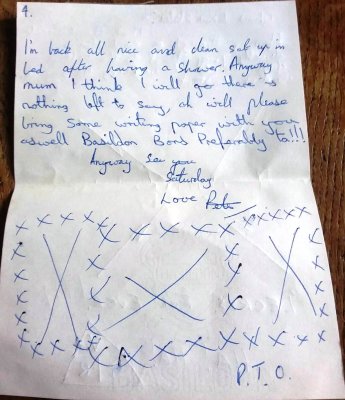 4.
I'm back all nice and clean sat up in
bed after having a shower. Anyway
mum I think I will go there is
nothing left to say, oh will please
bring some writing paper with you
aswell Basildon Bond Preferably ta!!!
Anyway see you
Saturday
Love Pete
P.T.O.